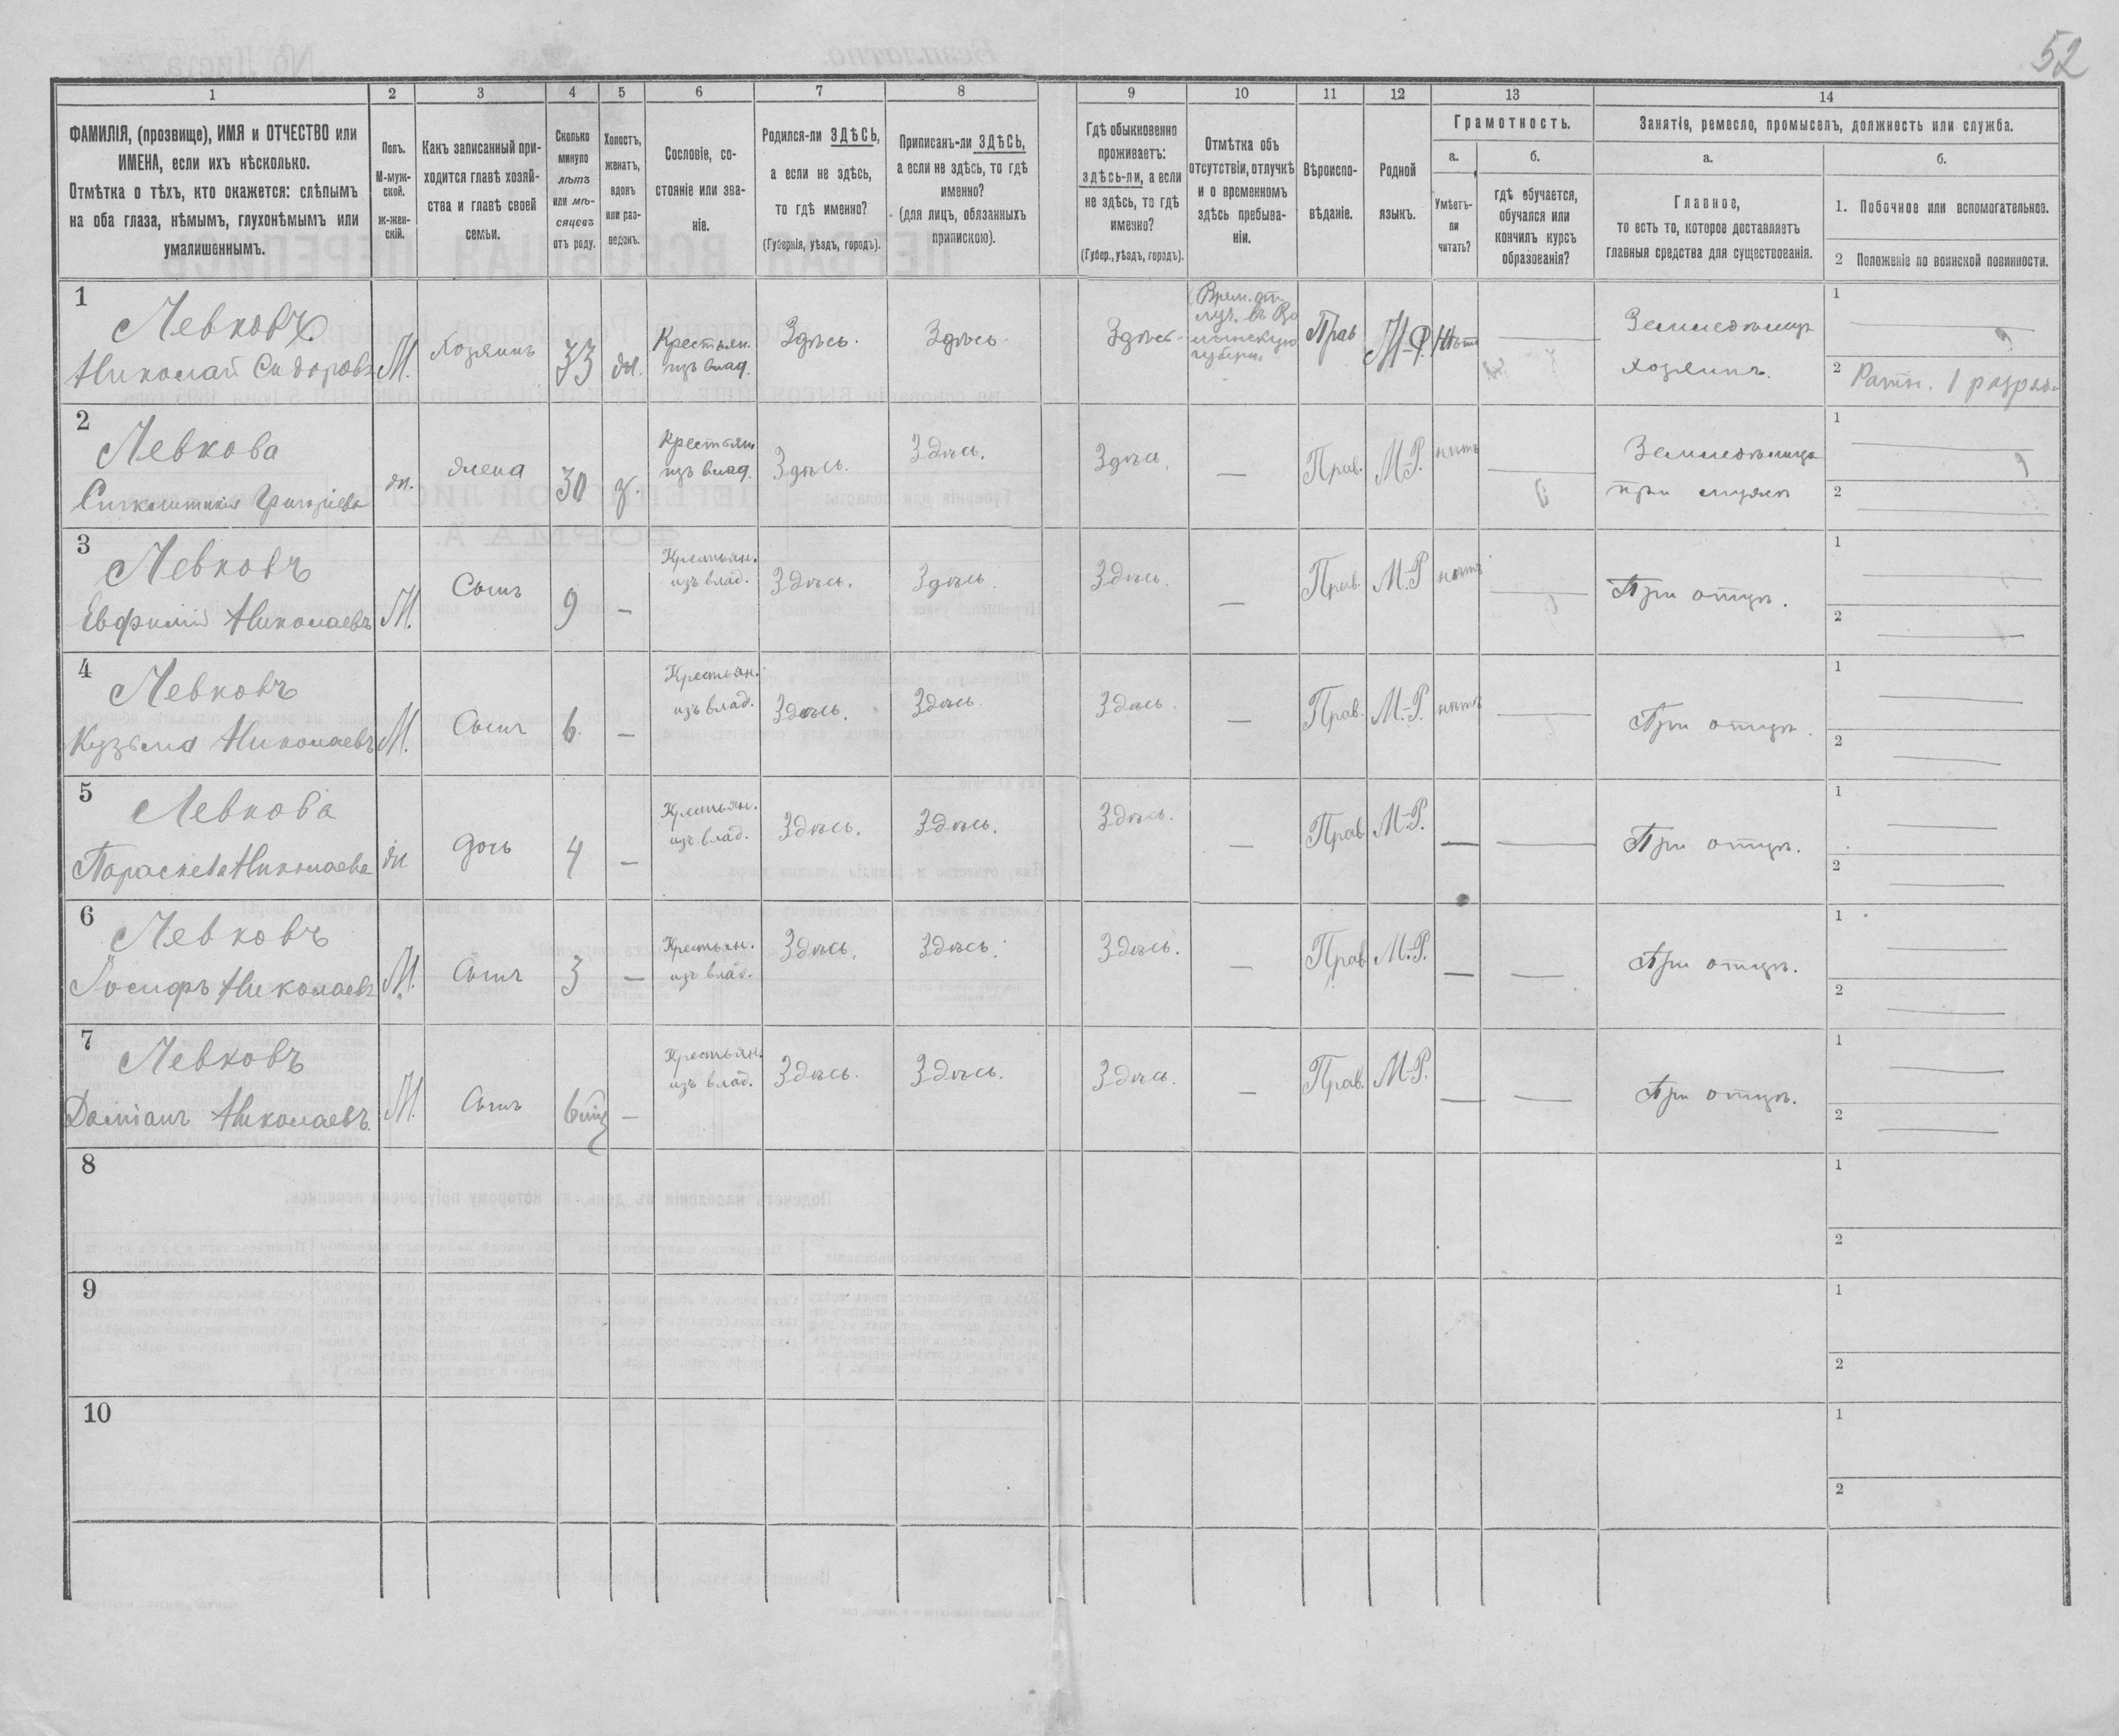 52
1 2 3 4 5 6 7 8 9 10 11 12 13 14
ФАМИЛІЯ, (прозвище), ИМЯ и ОТЧЕСТВО или
ИМЕНА, если ихъ нѣсколько.
Отмѣтка о тѣхъ, кто окажется: слѣпымъ
на оба глаза, нѣмымъ, глухонѣмымъ или
умалишеннымъ.
Полъ.
М-муж-
ской.
ж-жен-
скій.
Какъ записанный при-
ходится главѣ хозяй-
ства и главѣ своей
семьи.
Сколько
минуло
лѣтъ
или мѣ-
сяцевъ
отъ роду.
Холостъ,
женатъ,
вдовъ
или раз-
веденъ.
Сословіе, со-
стояніе или зва-
ніе.
Родился-ли ЗДѢСЬ,
а если не здѣсь,
то гдѣ именно?
(Губернія, уѣздъ, городъ).
Приписанъ-ли ЗДѢСЬ,
а если не здѣсь, то гдѣ
именно?
(для лицъ, обязанныхъ
припискою).
Гдѣ обыкновенно
проживаетъ:
здѣсь-ли, а если
не здѣсь, то гдѣ
именно?
(Губер., уѣздъ, городъ).
Отмѣтка объ
отсутствіи, отлучкѣ
и о временномъ
здѣсь пребыва-
ніи.
Вѣроиспо-
вѣданіе.
Родной
языкъ.
Грамотность.
а.
Умѣетъ-
ли
читать?
б.
гдѣ обучается,
обучался или
кончилъ курсъ
образованія?
Занятіе, ремесло, промыселъ, должность или служба.
а.
Главное,
то есть то, которое доставляетъ
главныя средства для существованія.
б.
1. Побочное или вспомогательное.
2 Положеніе по воинской повинности.
1
Левковъ
Николай Сидоровъ
М.
Хозяинъ
33
Крестьян.
изъ влад.
Здѣсь.
Здѣсь
Здѣсь
Врем. от-
луч. въ Во
лынскую
губерн.
Прав
М-Р.
Нѣтъ
Земледѣлецъ
хозяинъ.
1
2 Ратн. 1 разряд.
2
Левкова
жена
30
з.
Крестьян.
изъ влад.
Здѣсь.
Здѣсь.
Здѣсь.
—
Прав.
М-Р.
нѣтъ
при
1
2
3
Левковъ
Евфимій Николаевъ
М.
Сынъ
9
—
Крестьян.
изъ влад.
Здѣсь.
Здѣсь.
Здѣсь.
—
Прав.
М-Р
нѣтъ
При отцѣ.
1
2
4
Левковъ
Кузьма Николаевъ
М.
Сынъ
6.
—
Крестьян.
изъ влад.
Здѣсь.
Здѣсь.
Здѣсь.
—
Прав.
М-Р.
нѣтъ
При отцѣ.
1
2
5
Левкова
Параскева Николаева
жн
дочь
4
—
Крестьян.
изъ влад.
Здѣсь.
Здѣсь.
Здѣсь.
—
Прав.
М-Р.
—
При отцѣ.
1
2
6
Левковъ
Іосифъ Николаевъ
М.
Сынъ
3
—
Крестьян.
изъ влад.
Здѣсь.
Здѣсь.
Здѣсь.
—
Прав
М-Р.
—
—
При отцѣ.
1
2
7
Левковъ
Даміанъ Николаевъ.
М.
Сынъ
6 мѣс
—
Крестьян.
изъ влад.
Здѣсь.
Здѣсь.
Здѣсь.
—
Прав.
М-Р.
—
—
При отцѣ.
1
2
8
1
2
9
1
2
10
1
2